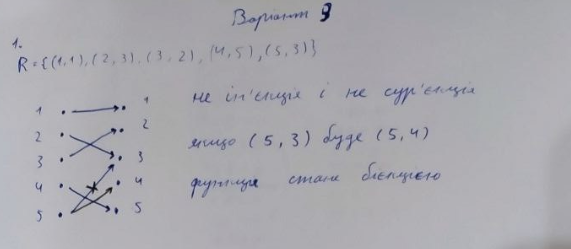 Варіант 9
1.
R = {(1,1), (2,3), (3,2), (4,5), (5,3)}
1 1
2 2
3 3
4 4
5 5
не ін'єкція і не сур'єкція
якщо (5,3) буде (5,4)
функція стане бієкцією